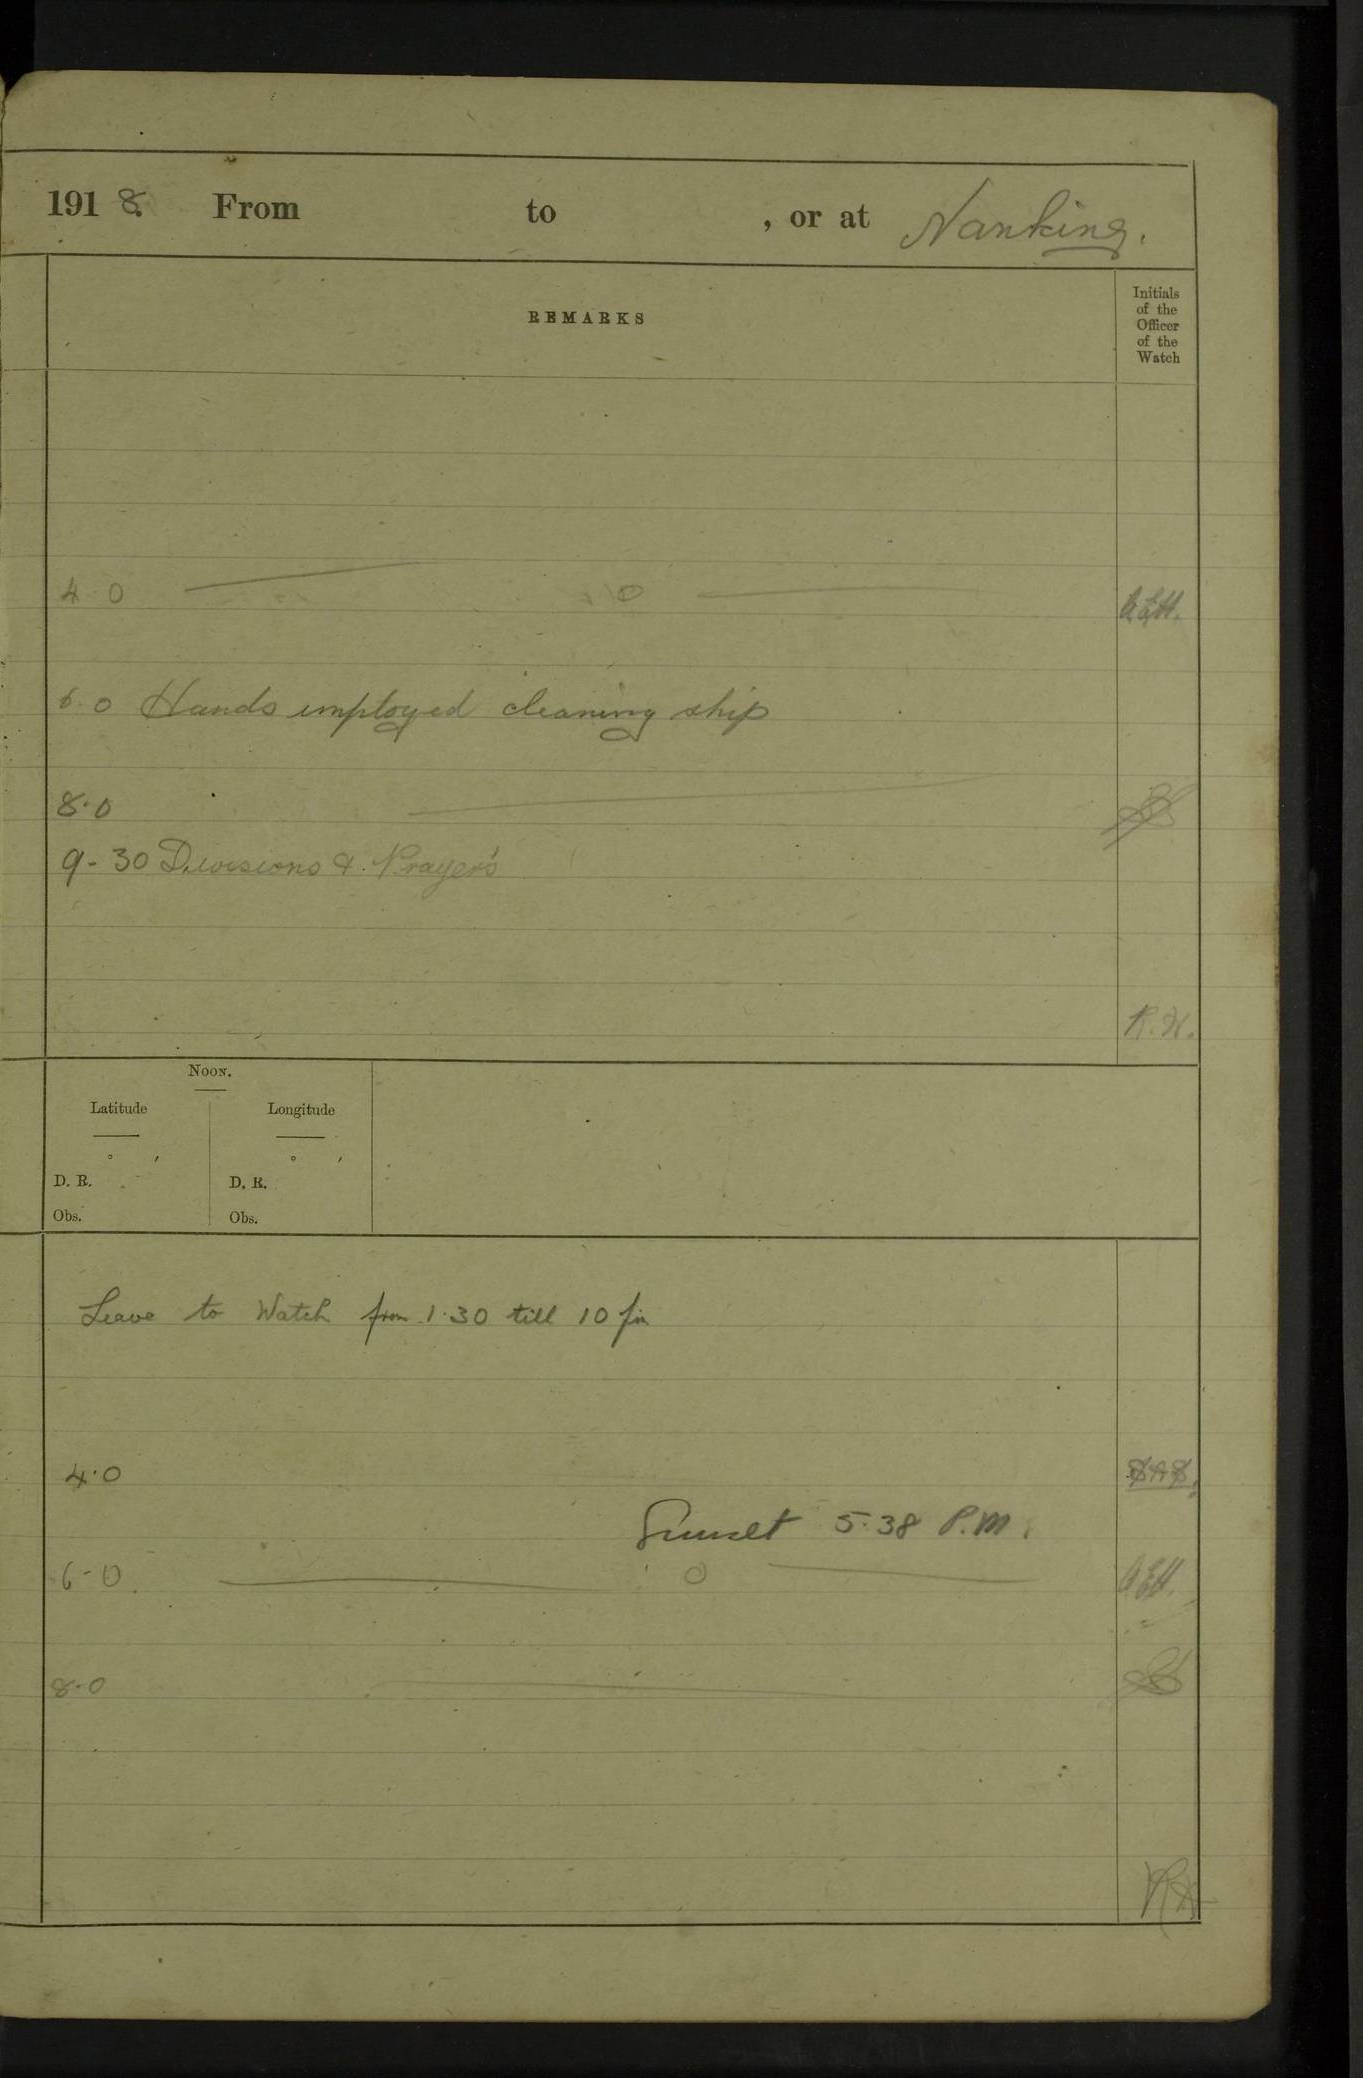 1918. From to , or at Nanking.
REMARKS
Initials
of the
Officer
of the
Watch
4 0
6.0 Hands employed cleaning ship
8.0
9-30 Divisions & Prayers
R.H.
NOON.
Latitude Longitude
° ′ ° ′
D. R. D. R.
Obs. Obs.
Leave to Watch from 1.30 till 10 pm
4.0
Sunset 5.38 P.M.
6-0 0
8.0